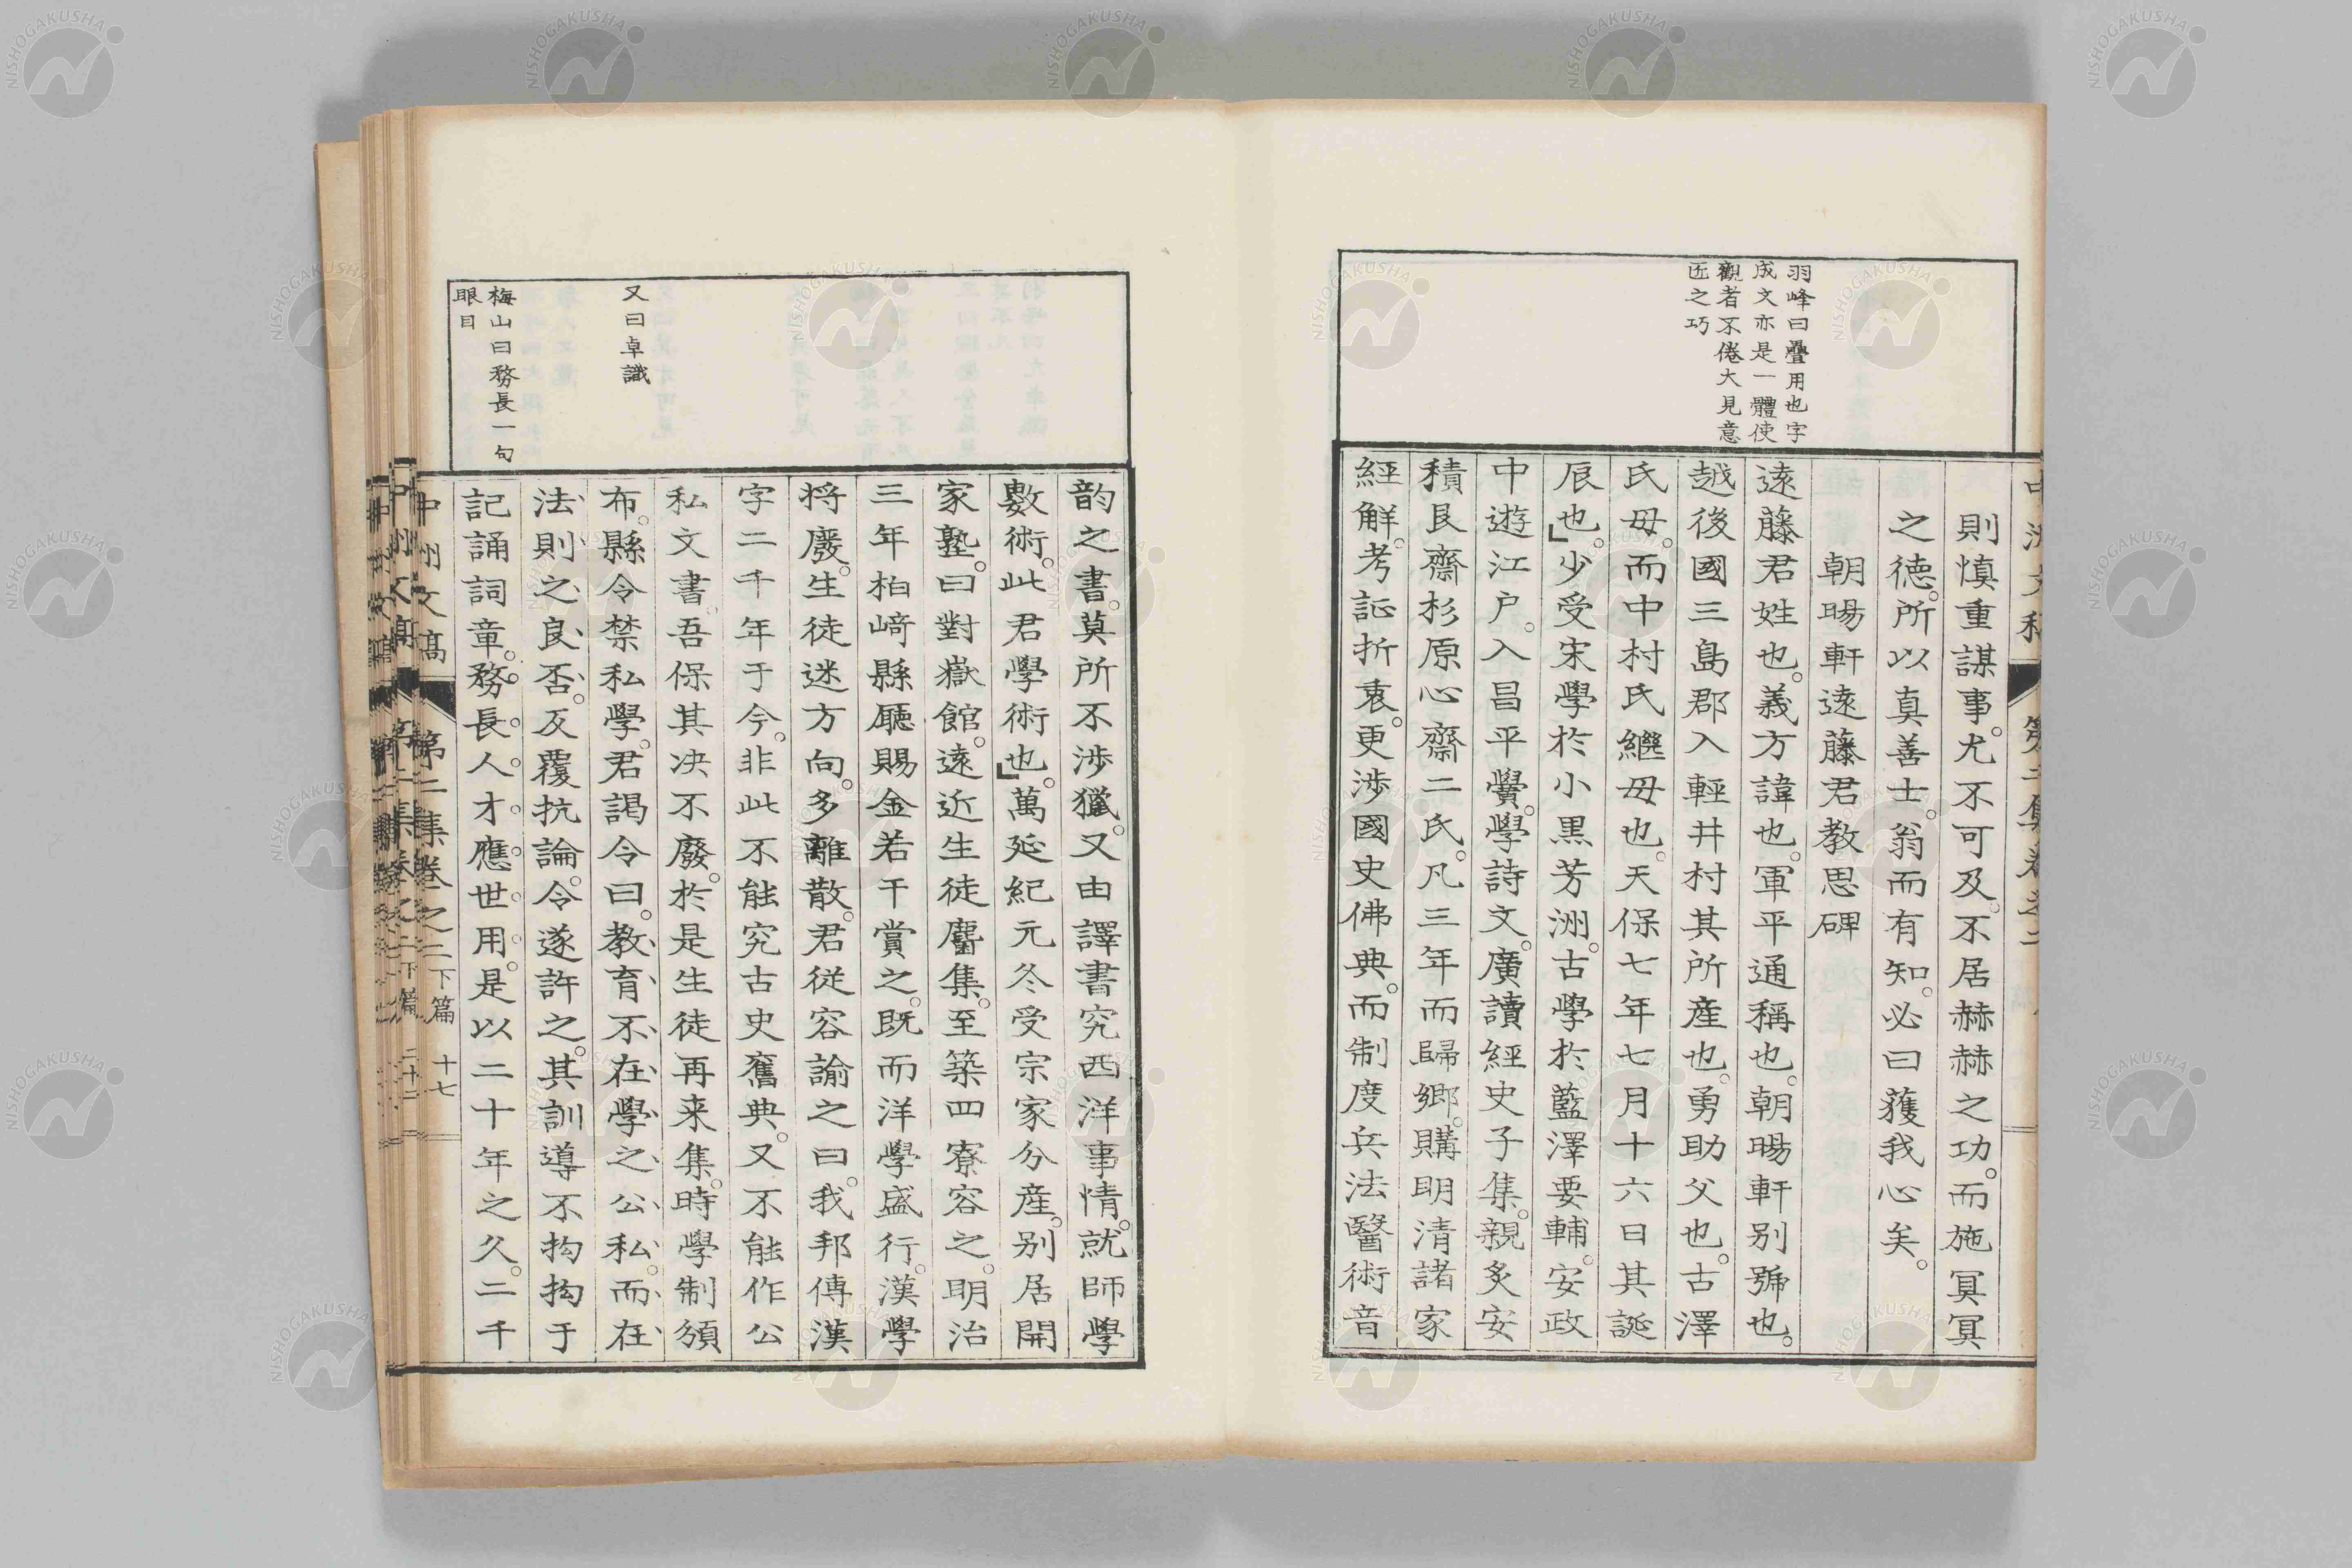 羽峰曰疊用也字
成文亦是一體使
觀者不倦大見意
匠之巧
則慎重謀事。尤不可及。不居赫赫之功。而施冥冥
之徳。所以真善士。翁而有知。必曰獲我心矣。
朝暘軒遠藤君教思碑
遠藤君姓也。義方諱也。軍平通稱也。朝暘軒別號也。
越後國三島郡入輕井村其所產也。勇助父也。古澤
氏毋。而中村氏繼毋也。天保七年七月十六日其誕
辰也。」少受宋學於小黒芳洲。古學於藍澤要輔。安政
中遊江戸。入昌平黌。學詩文。廣讀經史子集。親炙安
積艮齋杉原心齋二氏。凡三年而歸鄉。購明清諸家
經解。考証折衷。更渉國史佛典。而制度兵法醫術音
韵之書。莫所不渉獵。又由譯書究西洋事情。就師學
數術。此君學術也。」萬延紀元冬受宗家分産。別居開
家塾。曰對嶽館。遠近生徒麕集。至築四寮容之。明治
三年柏﨑縣廳賜金若干賞之。既而洋學盛行。漢學
将廢。生徒迷方向。多離散。君從容諭之曰。我邦傳漢
字二千年于今。非此不能究古史舊典。又不能作公
私文書。吾保其决不廢。於是生徒再来集。時學制頒
布。縣令禁私學。君謁令曰。教育不在學之公私。而在
法則之良否。反覆抗論。令遂許之。其訓導不拘拘于
記誦詞章。務長人才應世用。是以二十年之久。二千
又曰卓識
梅山曰務長一句
眼目
中洲文稿
第二集卷之二下篇
十七